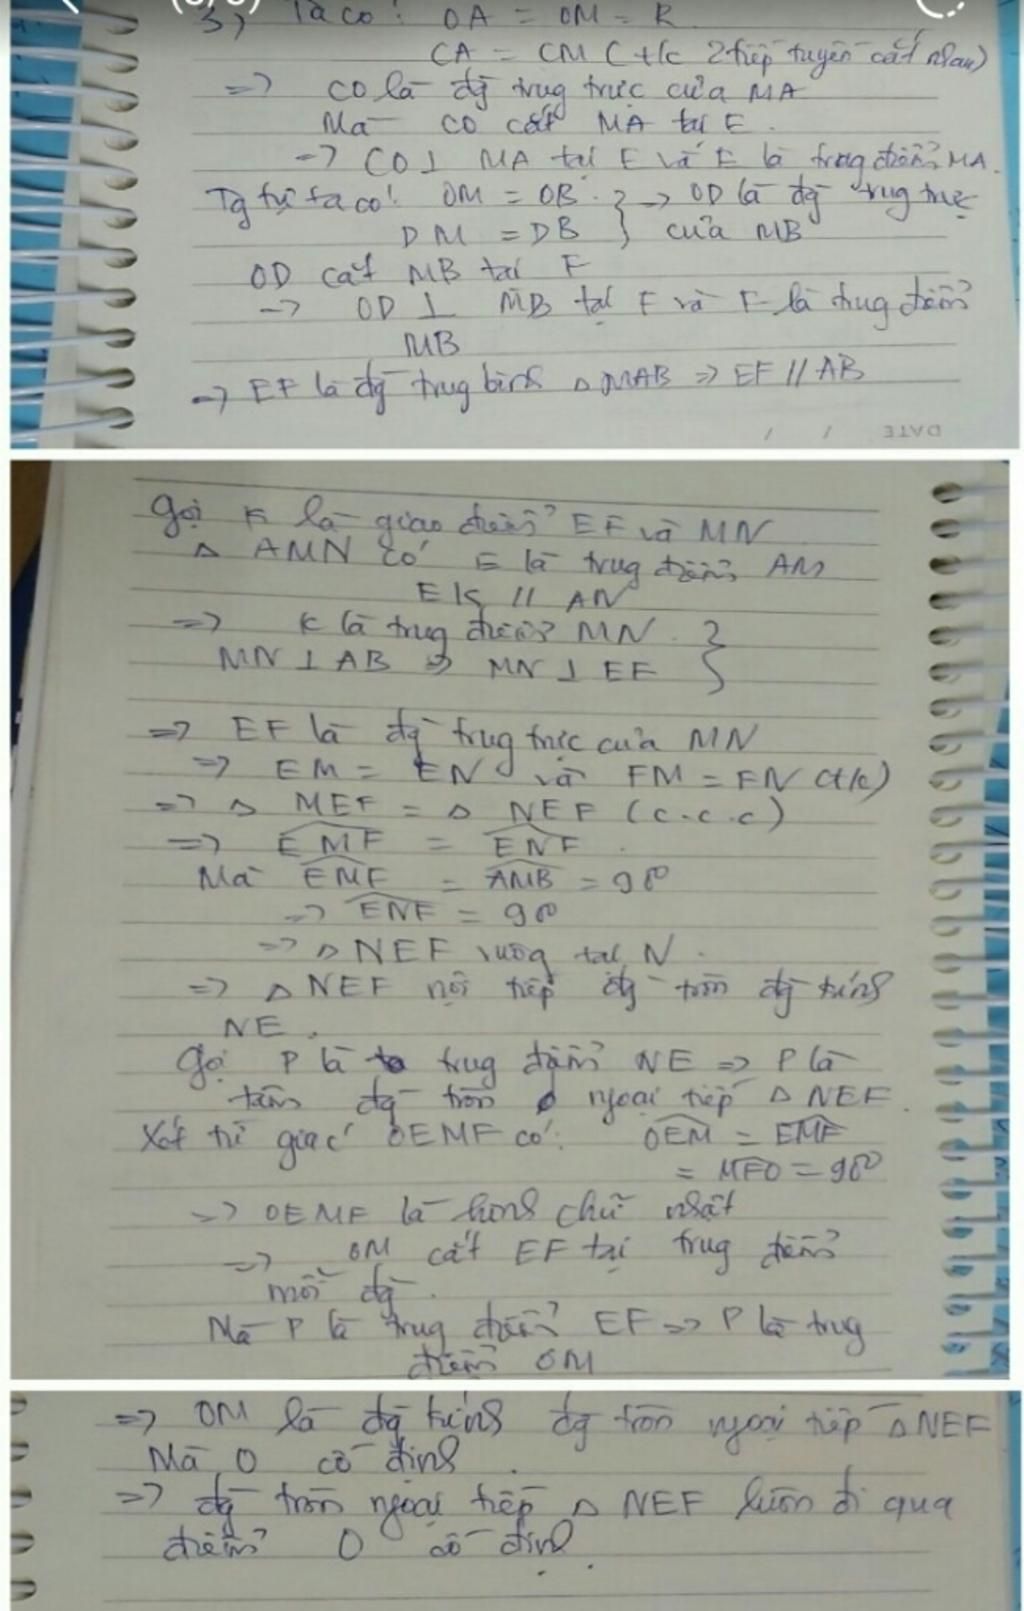 3) Ta có: OA = OM = R
CA = CM (t/c 2 tiếp tuyến cắt nhau)
=> CO là đg trug trực của MA
Mà CO cắt MA tại E.
=> CO ⊥ MA tại E và E là trug điểm MA.
Tg tự ta có: OM = OB } => OD là đg trug trực
DM = DB } của MB
OD cắt MB tại F
=> OD ⊥ MB tại F và F là trug điểm
MB
=> EF là đg trug bình △ MAB => EF // AB
DATE / /
Gọi K là giao điểm EF và MN
△ AMN có E là trug điểm AM
EK // AN
=> K là trug điểm MN. }
MN ⊥ AB => MN ⊥ EF }
=> EF là đg trug trực của MN
=> EM = EN và FM = FN (t/c)
=> △ MEF = △ NEF (c.c.c)
=> EMF = ENF.
Mà EMF = AMB = 90°
=> ENF = 90°
=> △ NEF vuôg tại N.
=> △ NEF nội tiếp đg tròn đg kính
NE.
Gọi P là trug điểm NE => P là
tâm đg tròn ngoại tiếp △ NEF.
Xét tứ giác OEMF có: OEM = EMF
= MFO = 90°
=> OEMF là hình chữ nhật
=> OM cắt EF tại trug điểm
mỗi đg.
Mà P là trug điểm EF => P là trug
điểm OM
=> OM là đg kính đg tròn ngoại tiếp △ NEF
Mà O cố định.
=> đg tròn ngoại tiếp △ NEF luôn đi qua
điểm O cố định.